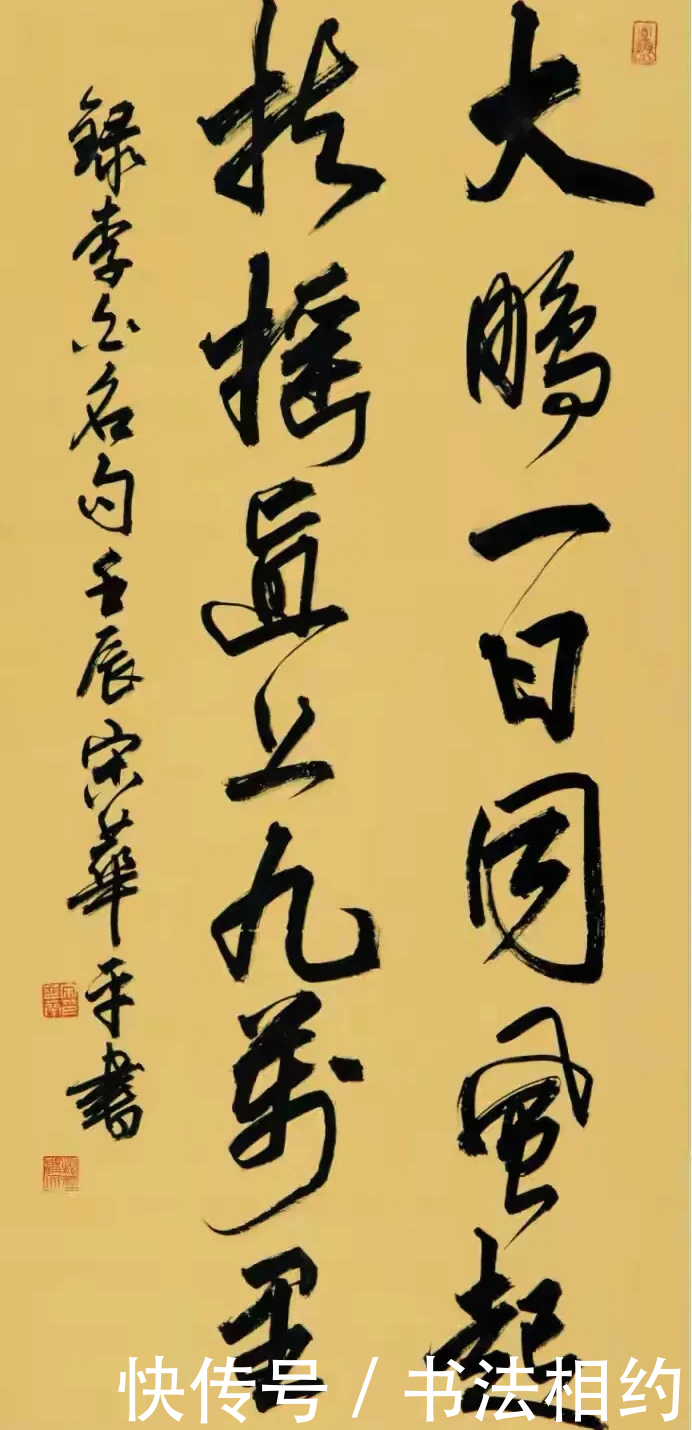 大鵬一日同風起
扶搖直上九萬里
錄李白名句壬辰宋華平書
快传号 / 书法相约